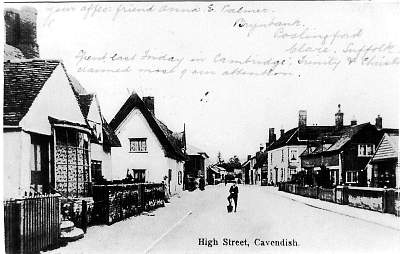 Your affec. friend Anna E. Palmer.
Brynbank,
Poslingford
Clare, Suffolk
Spent last Friday in Cambridge, Trinity & Christs
claimed most of our attention
High Street, Cavendish.